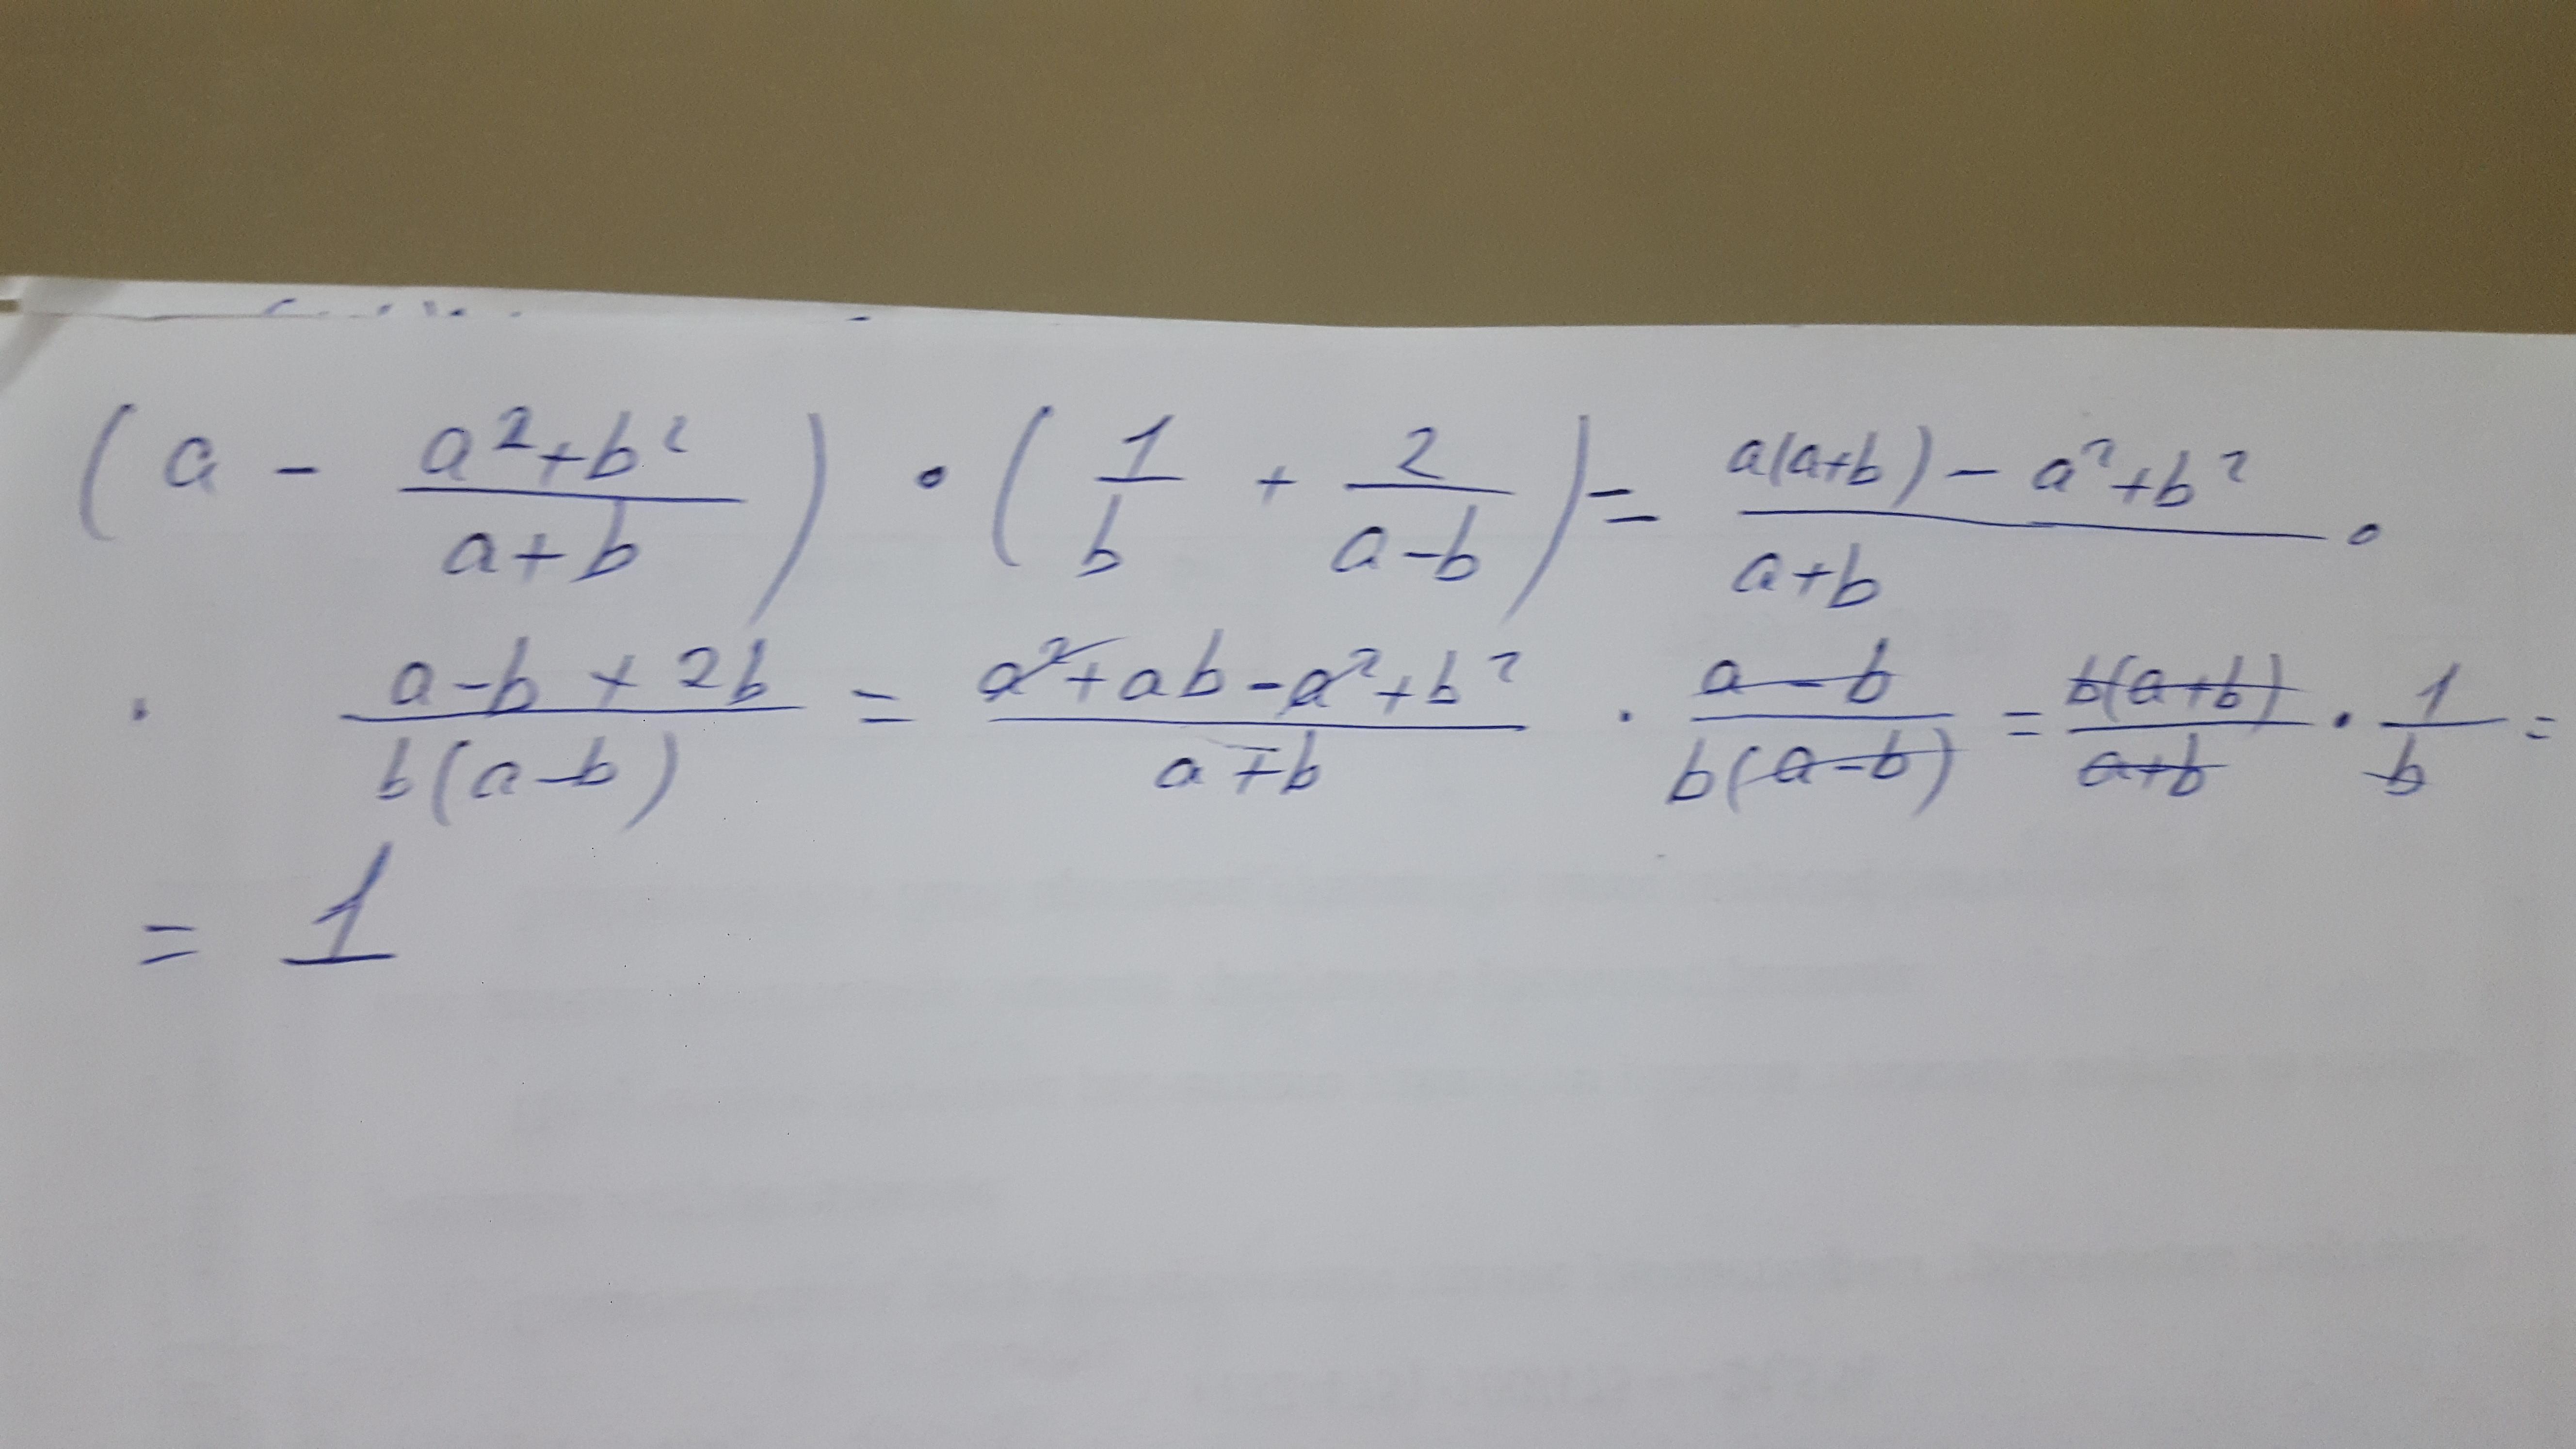 (a - \frac{a²+b²}{a+b}) • (\frac{1}{b} + \frac{2}{a-b}) = \frac{a(a+b) - a²+b²}{a+b} •
• \frac{a-b+2b}{b(a-b)} = \frac{a²+ab-a²+b²}{a+b} • \frac{a-b}{b(a-b)} = \frac{b(a+b)}{a+b} • \frac{1}{b} =
= 1